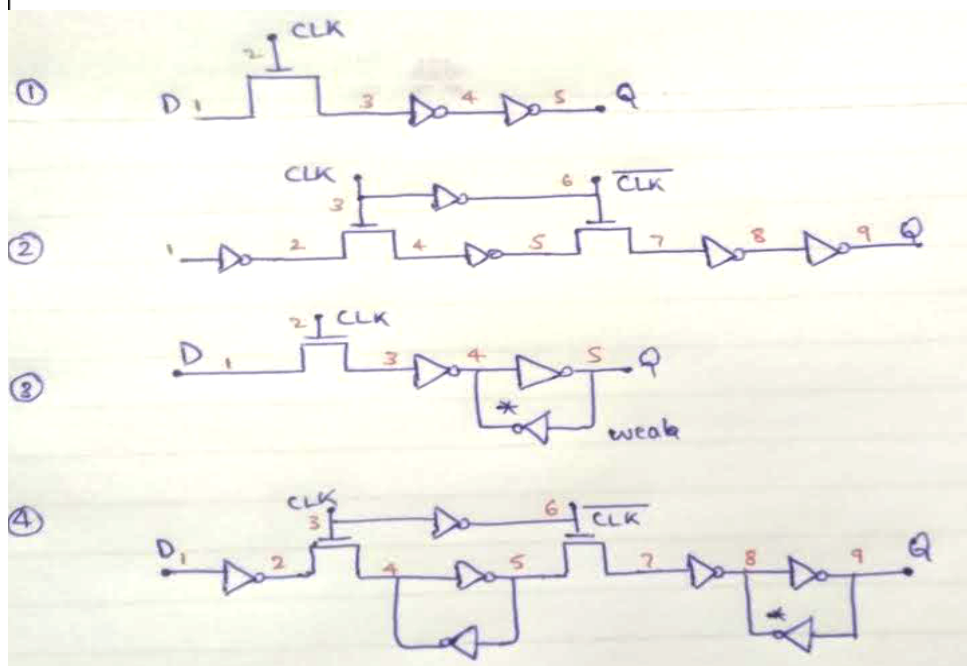 CLK
2
① D 1 3 4 5 Q
CLK 6 C̅L̅K̅
3
② 1 2 4 5 7 8 9 Q
2 CLK
D 1 3 4 5 Q
③ * weak
CLK 6 C̅L̅K̅
④ 3
D 1 2 4 5 7 8 9 Q
*